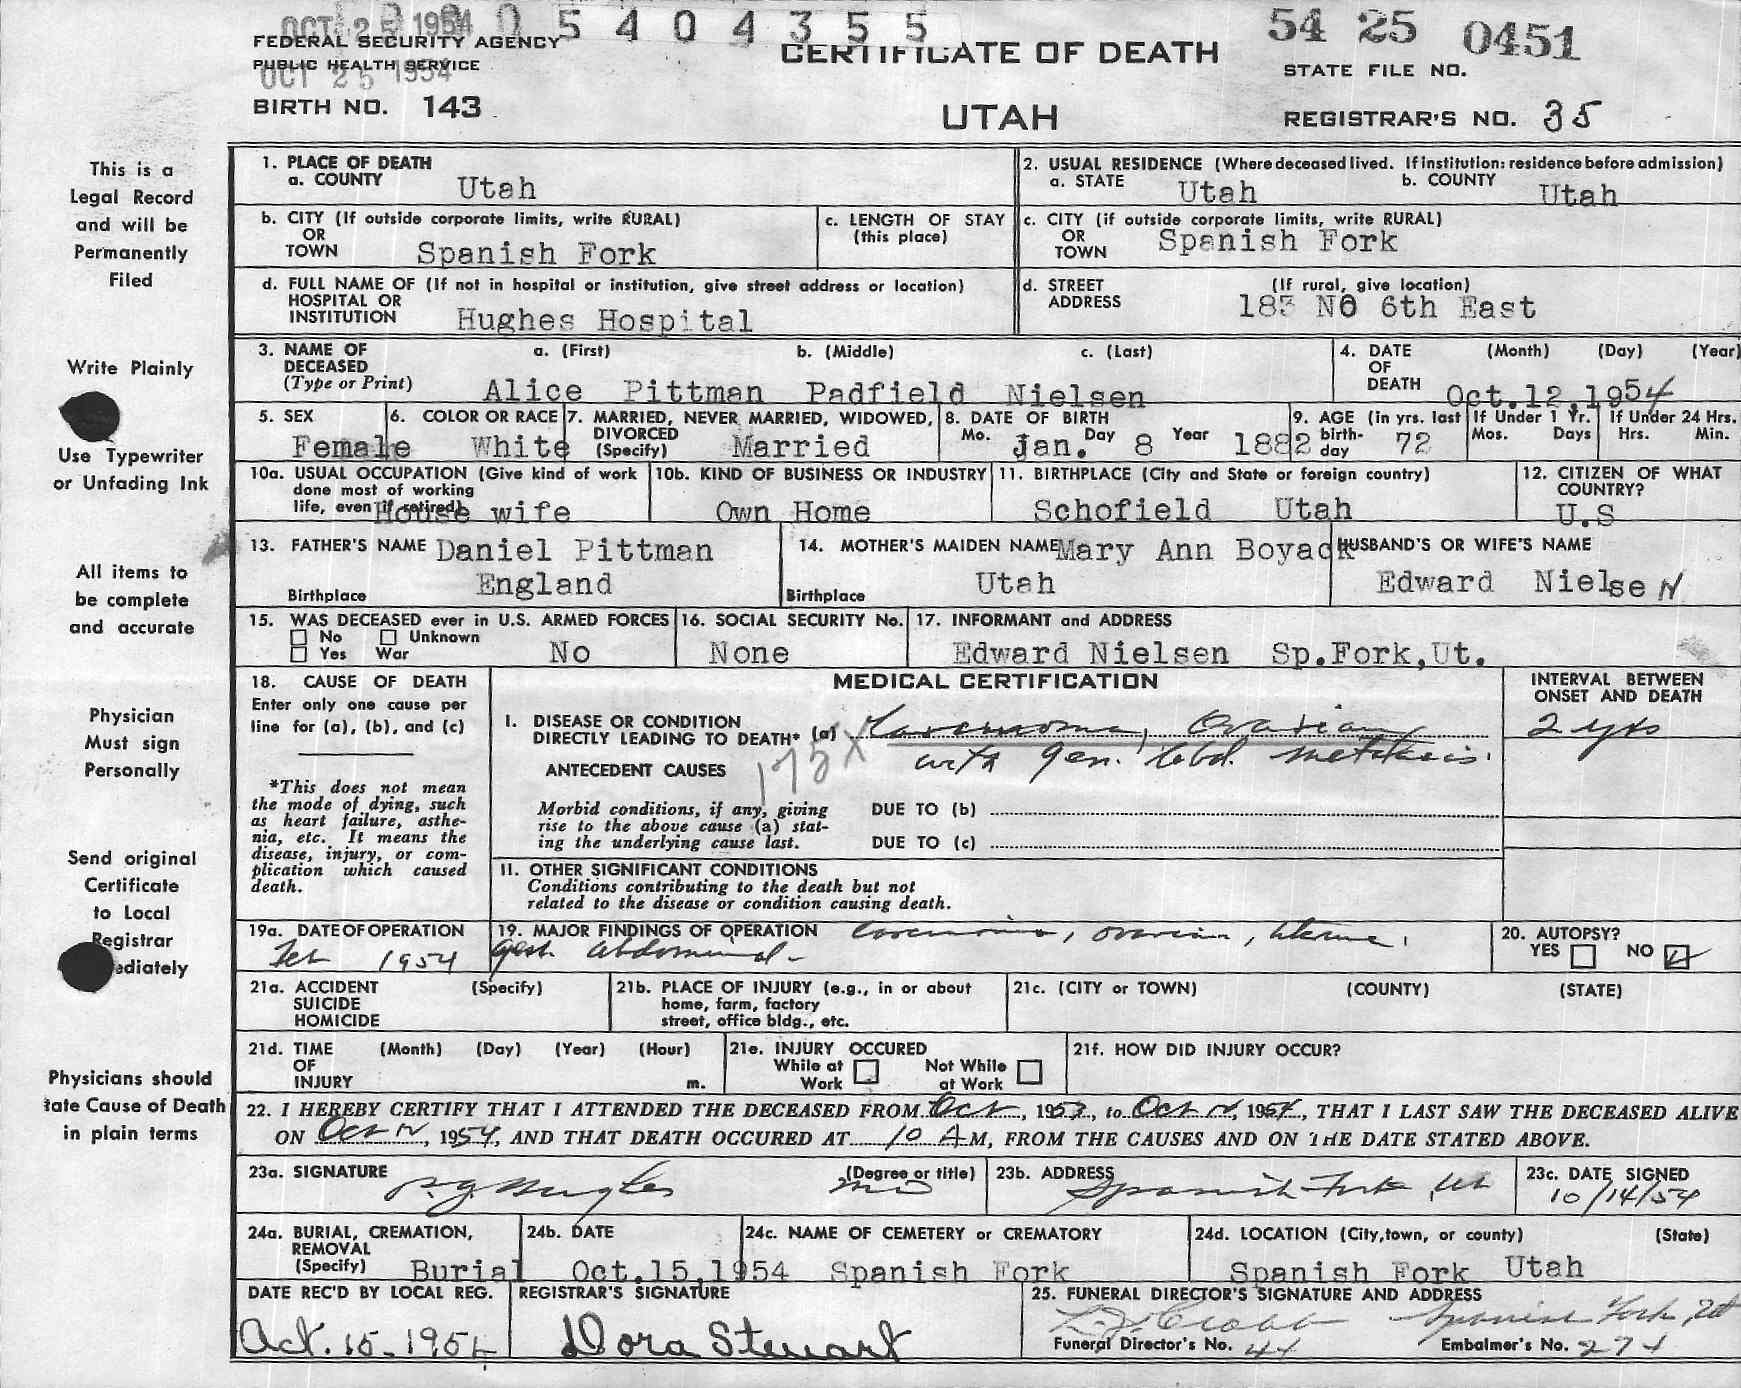 OCT 25 1954
5404355
54 25 0451
FEDERAL SECURITY AGENCY
PUBLIC HEALTH SERVICE
OCT 25 1954
CERTIFICATE OF DEATH
STATE FILE NO.
BIRTH NO. 143
UTAH
REGISTRAR'S NO. 35
This is a
Legal Record
and will be
Permanently
Filed
Write Plainly
Use Typewriter
or Unfading Ink
All items to
be complete
and accurate
Physician
Must sign
Personally
Send original
Certificate
to Local
Registrar
ediately
Physicians should
tate Cause of Death
in plain terms
1. PLACE OF DEATH
a. COUNTY Utah
2. USUAL RESIDENCE (Where deceased lived. If institution: residence before admission)
a. STATE Utah b. COUNTY Utah
b. CITY (If outside corporate limits, write RURAL)
OR
TOWN Spanish Fork
c. LENGTH OF STAY
(this place)
c. CITY (if outside corporate limits, write RURAL)
OR
TOWN Spanish Fork
d. FULL NAME OF (If not in hospital or institution, give street address or location)
HOSPITAL OR
INSTITUTION Hughes Hospital
d. STREET (If rural, give location)
ADDRESS 183 NO 6th East
3. NAME OF a. (First) b. (Middle) c. (Last)
DECEASED
(Type or Print) Alice Pittman Padfield Nielsen
4. DATE (Month) (Day) (Year)
OF
DEATH Oct.12,1954
5. SEX
Female
6. COLOR OR RACE
White
7. MARRIED, NEVER MARRIED, WIDOWED,
DIVORCED
(Specify) Married
8. DATE OF BIRTH
Mo. Jan. Day 8 Year 1882
9. AGE (in yrs. last
birth-
day 72
If Under 1 Yr.
Mos. Days
If Under 24 Hrs.
Hrs. Min.
10a. USUAL OCCUPATION (Give kind of work
done most of working
life, even if retired) House wife
10b. KIND OF BUSINESS OR INDUSTRY
Own Home
11. BIRTHPLACE (City and State or foreign country)
Schofield Utah
12. CITIZEN OF WHAT
COUNTRY?
U.S
13. FATHER'S NAME Daniel Pittman
Birthplace England
14. MOTHER'S MAIDEN NAME Mary Ann Boyack
Birthplace Utah
HUSBAND'S OR WIFE'S NAME
Edward Nielsen
15. WAS DECEASED ever in U.S. ARMED FORCES
No Unknown
Yes War No
16. SOCIAL SECURITY No.
None
17. INFORMANT and ADDRESS
Edward Nielsen Sp.Fork,Ut.
18. CAUSE OF DEATH
Enter only one cause per
line for (a), (b), and (c)
*This does not mean
the mode of dying, such
as heart failure, asthe-
nia, etc. It means the
disease, injury, or com-
plication which caused
death.
MEDICAL CERTIFICATION
INTERVAL BETWEEN
ONSET AND DEATH
I. DISEASE OR CONDITION
DIRECTLY LEADING TO DEATH* (a) Carcinoma, Ovarian 2 yrs
with gen. abd. metastasis.
175X
ANTECEDENT CAUSES
Morbid conditions, if any, giving
rise to the above cause (a) stat-
ing the underlying cause last.
DUE TO (b)
DUE TO (c)
II. OTHER SIGNIFICANT CONDITIONS
Conditions contributing to the death but not
related to the disease or condition causing death.
19a. DATE OF OPERATION
Feb 1954
19. MAJOR FINDINGS OF OPERATION Carcinoma, ovarian, uterine,
gen. abdominal-
20. AUTOPSY?
YES NO
21a. ACCIDENT (Specify)
SUICIDE
HOMICIDE
21b. PLACE OF INJURY (e.g., in or about
home, farm, factory
street, office bldg., etc.
21c. (CITY or TOWN) (COUNTY) (STATE)
21d. TIME (Month) (Day) (Year) (Hour)
OF
INJURY m.
21e. INJURY OCCURED
While at Not While
Work at Work
21f. HOW DID INJURY OCCUR?
22. I HEREBY CERTIFY THAT I ATTENDED THE DECEASED FROM Oct, 195, to Oct 12, 1954, THAT I LAST SAW THE DECEASED ALIVE
ON Oct 12, 1954, AND THAT DEATH OCCURED AT 10 A M, FROM THE CAUSES AND ON THE DATE STATED ABOVE.
23a. SIGNATURE (Degree or title)
Hughes MD
23b. ADDRESS
Spanish Fork, Ut
23c. DATE SIGNED
10/14/54
24a. BURIAL, CREMATION,
REMOVAL
(Specify) Burial
24b. DATE
Oct.15,1954
24c. NAME OF CEMETERY or CREMATORY
Spanish Fork
24d. LOCATION (City, town, or county) (State)
Spanish Fork Utah
DATE REC'D BY LOCAL REG.
Oct. 15-1954
REGISTRAR'S SIGNATURE
Dora Stewart
25. FUNERAL DIRECTOR'S SIGNATURE AND ADDRESS
Spanish Fork, Ut
Funeral Director's No. 44
Embalmer's No. 271